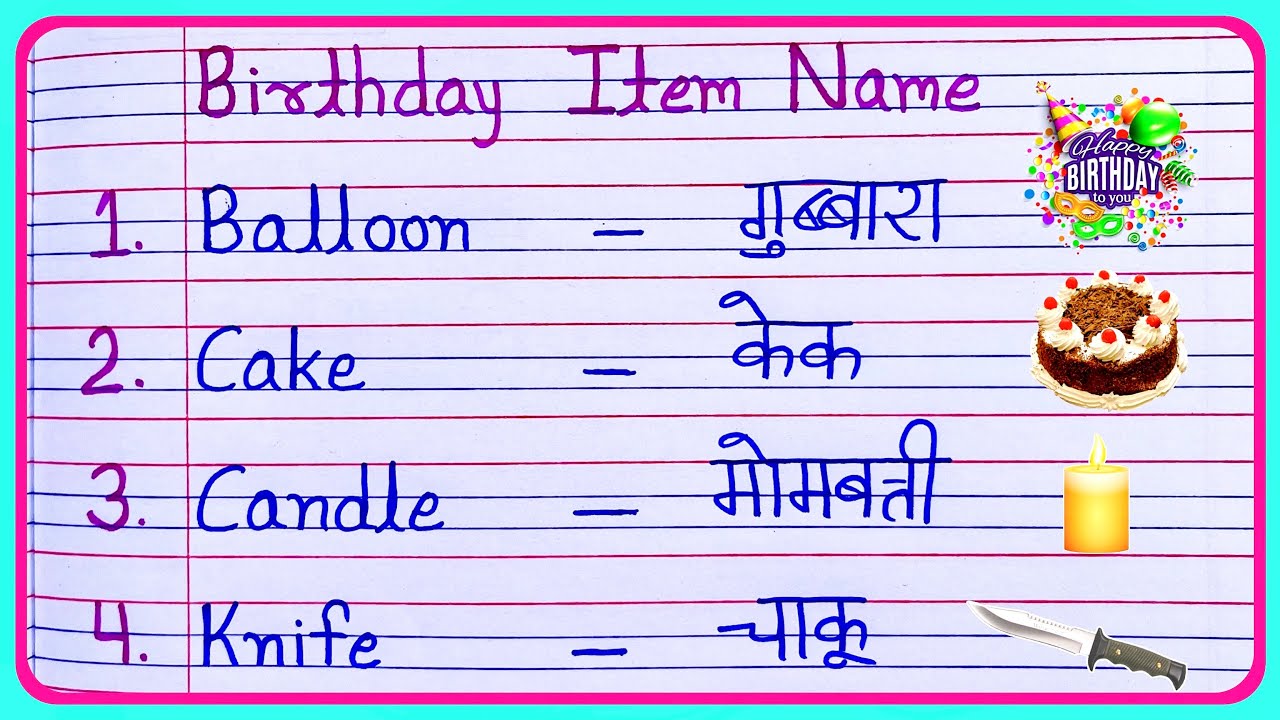 Birthday Item Name
Happy
BIRTHDAY
to you
1. Balloon - गुब्बारा
2. Cake - केक
3. Candle - मोमबत्ती
4. Knife - चाकू